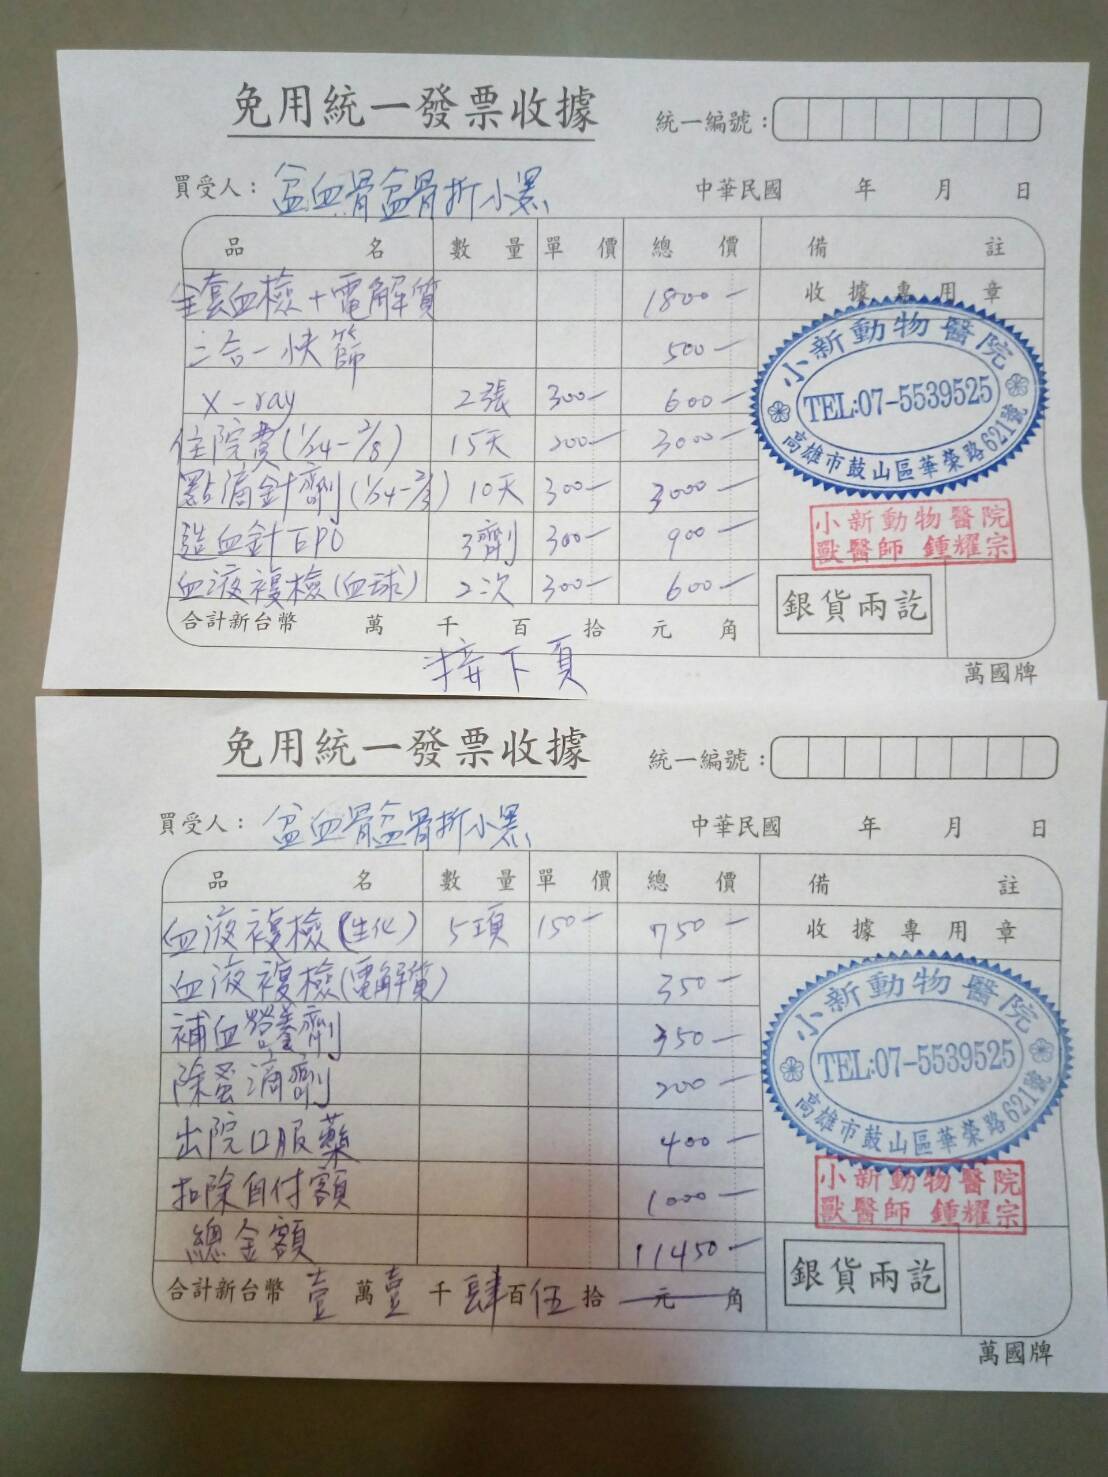 免用統一發票收據
統一編號：
買受人：盆血骨盆骨折小黑
中華民國 年 月 日
品名 數量 單價 總價 備註
全套血檢+電解質 1800- 收據專用章
三合一快篩 500-
X-ray 2張 300- 600-
住院費(1/24-2/8) 15天 200- 3000-
點滴針劑(1/24-2/3) 10天 300- 3000-
造血針EPO 3劑 300- 900-
血液複檢(血球) 2次 300- 600-
小新動物醫院
TEL:07-5539525
高雄市鼓山區華榮路621號
小新動物醫院
獸醫師 鍾耀宗
銀貨兩訖
合計新台幣 萬 千 百 拾 元 角
接下頁
萬國牌
免用統一發票收據
統一編號：
買受人：盆血骨盆骨折小黑
中華民國 年 月 日
品名 數量 單價 總價 備註
血液複檢(生化) 5項 150- 750- 收據專用章
血液複檢(電解質) 350-
補血營養劑 350-
除蚤滴劑 200-
出院口服藥 400-
扣除自付額 1000-
總金額 11450-
小新動物醫院
TEL:07-5539525
高雄市鼓山區華榮路621號
小新動物醫院
獸醫師 鍾耀宗
銀貨兩訖
合計新台幣 壹萬壹千肆百伍拾元角
萬國牌